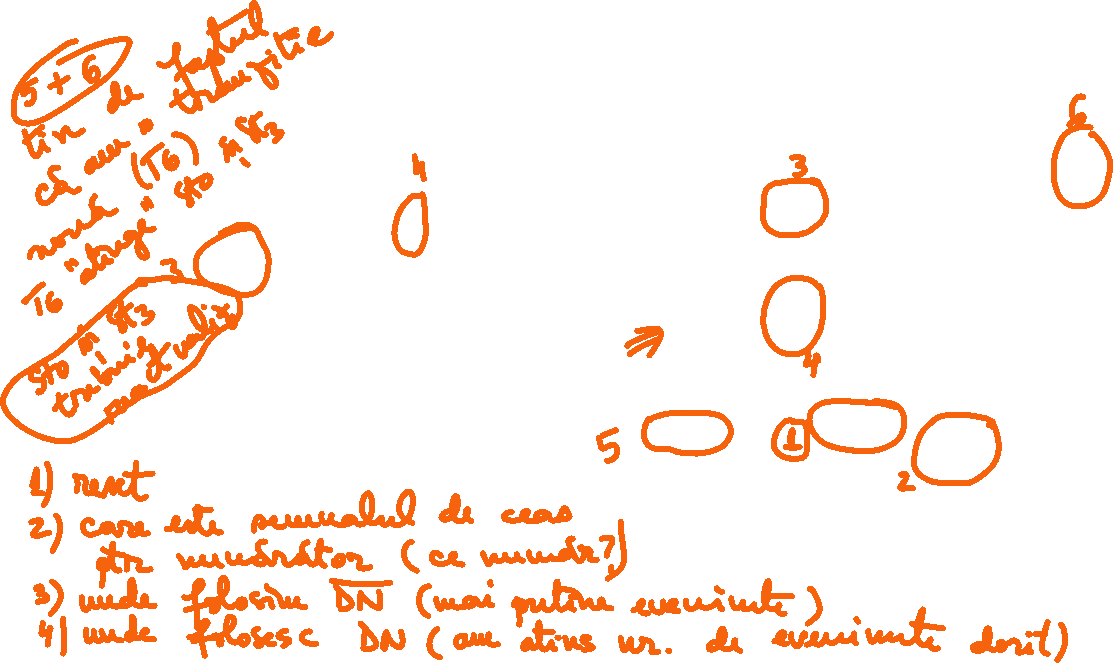 5 + 6
țin de faptul
că am " tranziție
nouă (T6)
T6 "atinge" St0 și St3
St0 și St3
trebuie
4
3
6
3
4
5
1
2
1) reset
2) care este semnalul de ceas
ptr numărător (ce număr?)
3) unde folosim D̅N̅ (mai puține evenimente)
4) unde folosesc DN (am atins nr. de evenimente dorit)